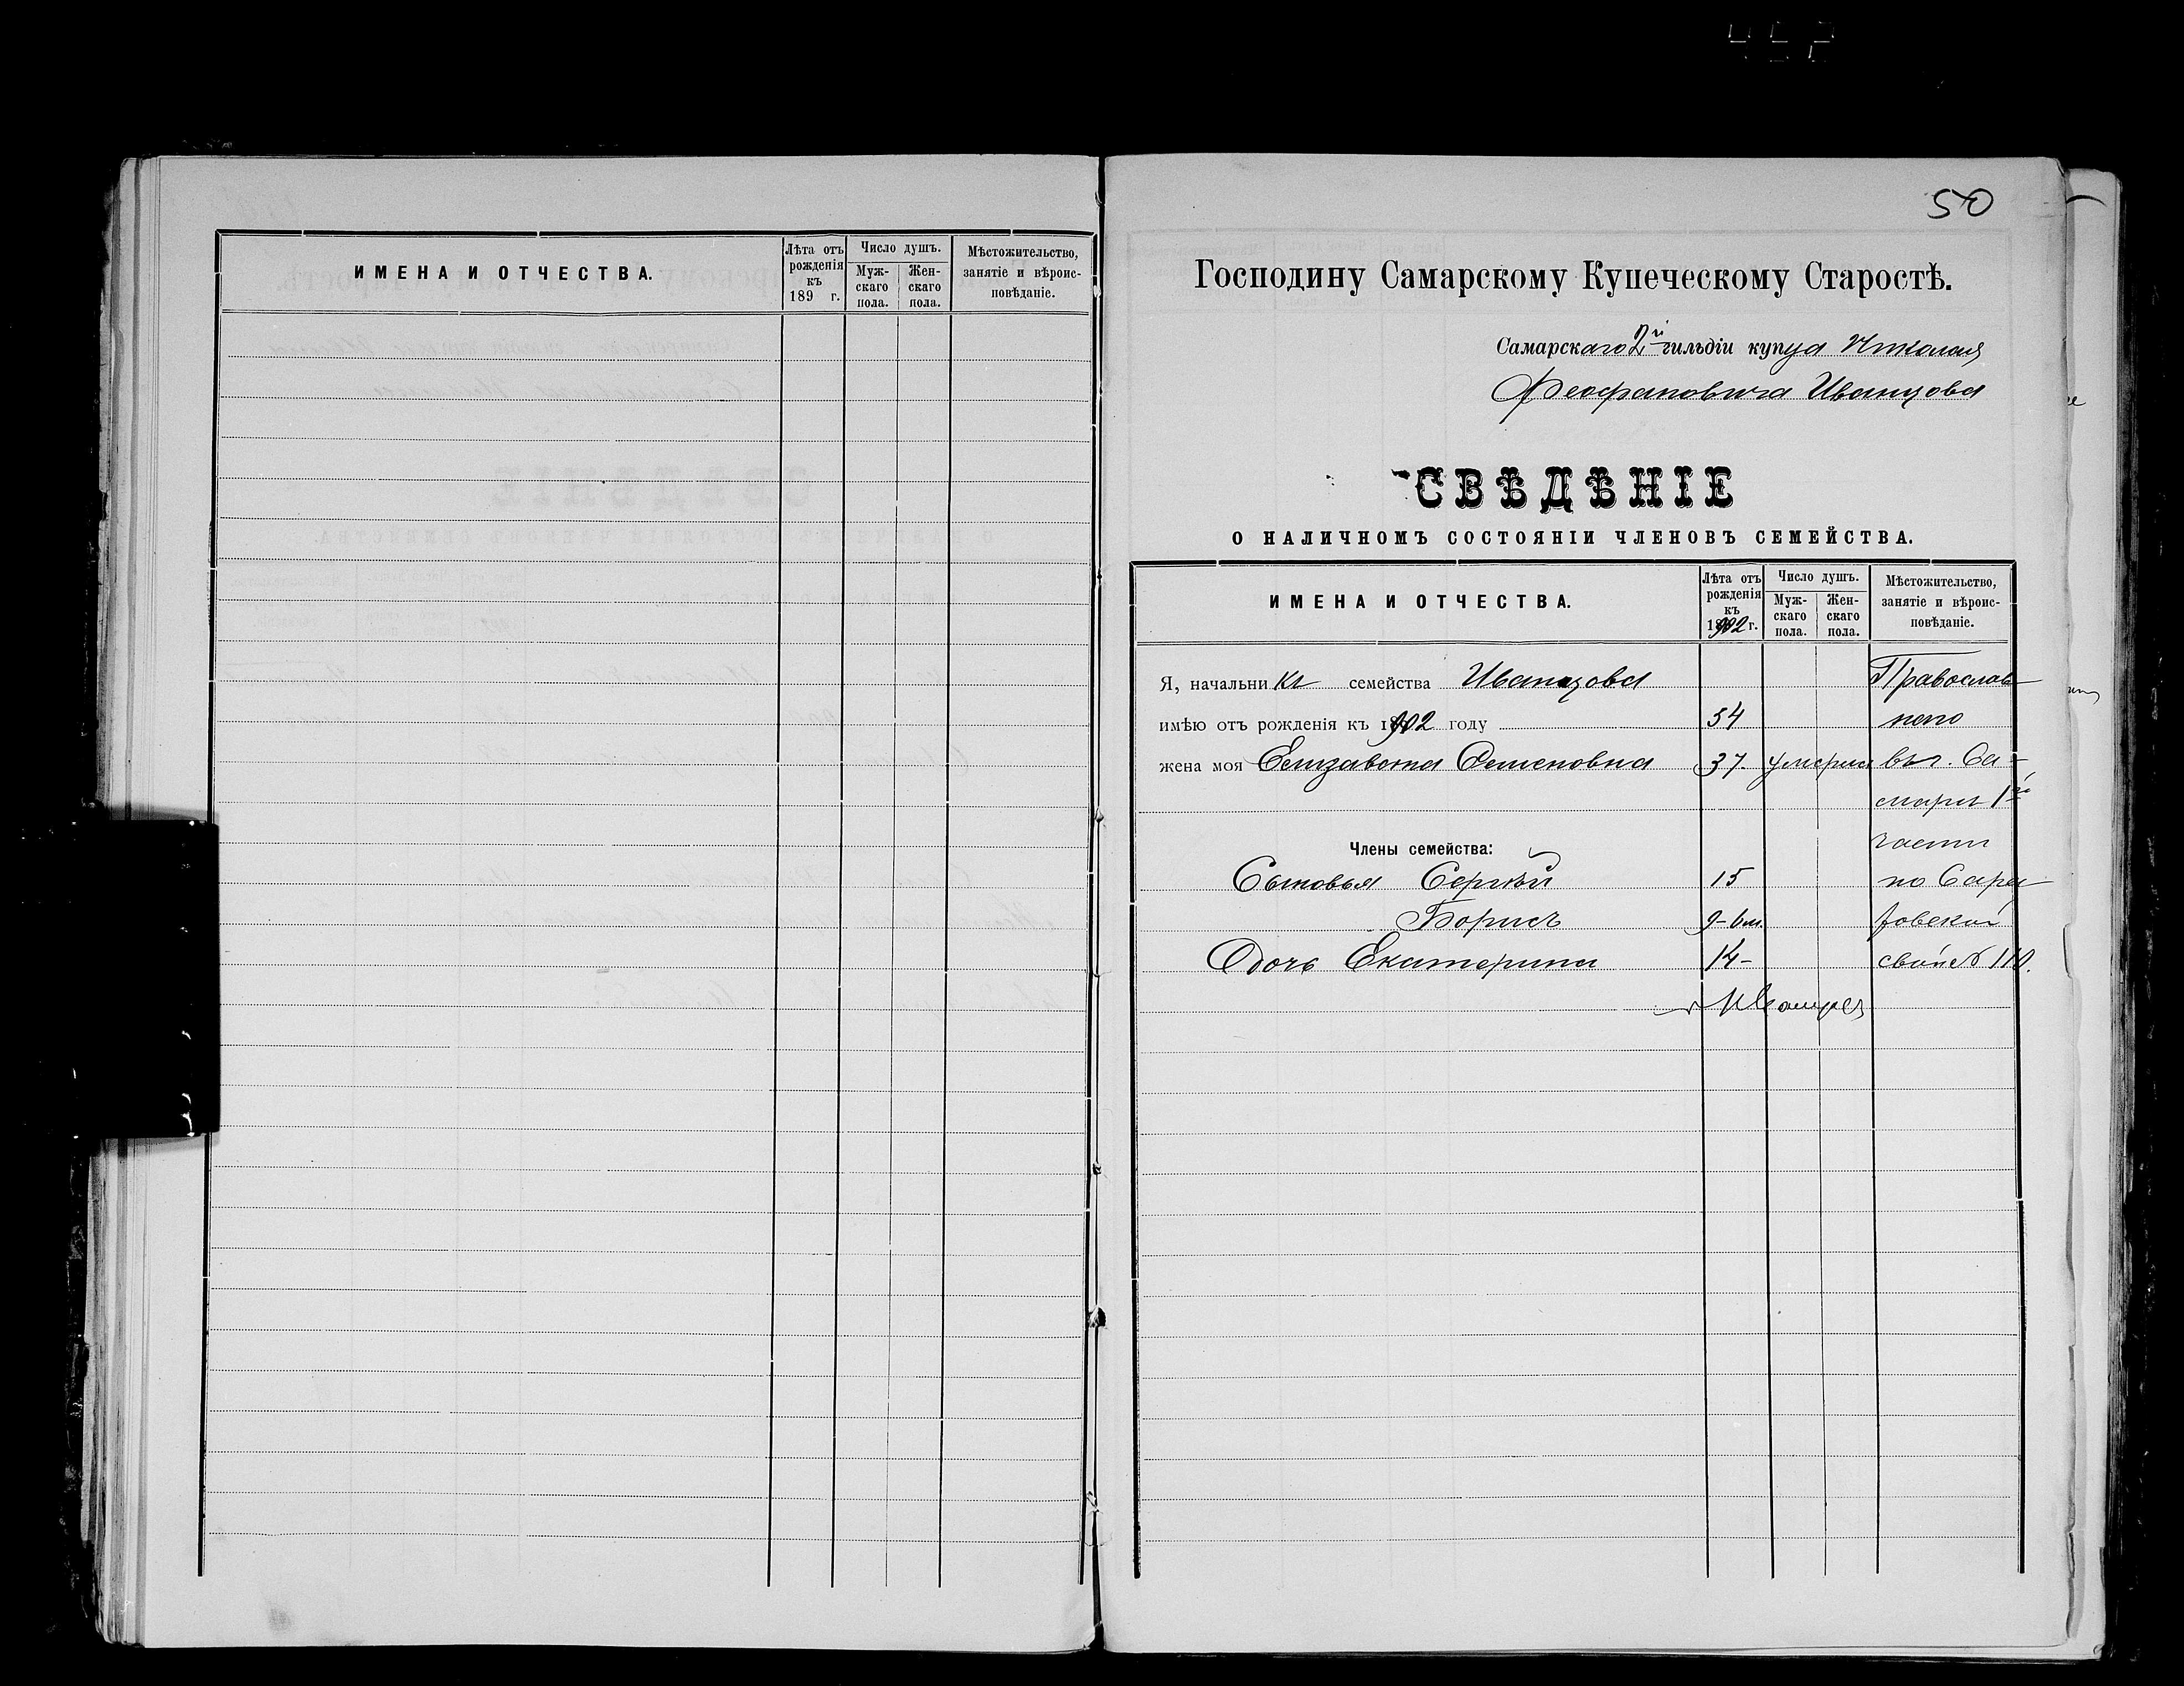 ИМЕНА И ОТЧЕСТВА.
Лѣта отъ рожденія къ 189 г.
Число душъ.
Мужскаго пола.
Женскаго пола.
Мѣстожительство, занятіе и вѣроисповѣданіе.
50
Господину Самарскому Купеческому Старостѣ.
Самарскаго 2й гильдіи купца Николая
Феофановича Иванцова
СВѢДѢНІЕ
О НАЛИЧНОМЪ СОСТОЯНІИ ЧЛЕНОВЪ СЕМЕЙСТВА.
ИМЕНА И ОТЧЕСТВА.
Лѣта отъ рожденія къ 1902 г.
Число душъ.
Мужскаго пола.
Женскаго пола.
Мѣстожительство, занятіе и вѣроисповѣданіе.
Я, начальникъ семейства Иванцова Православ
имѣю отъ рожденія къ 1902 году 54
жена моя Елизавета Семеновна 37 умерла въ г. Са-
мары 1й
Члены семейства: части
Сыновья Сергѣй 15 по Сара
Борисъ 9-6 м. товской
Дочь Екатерина 14-